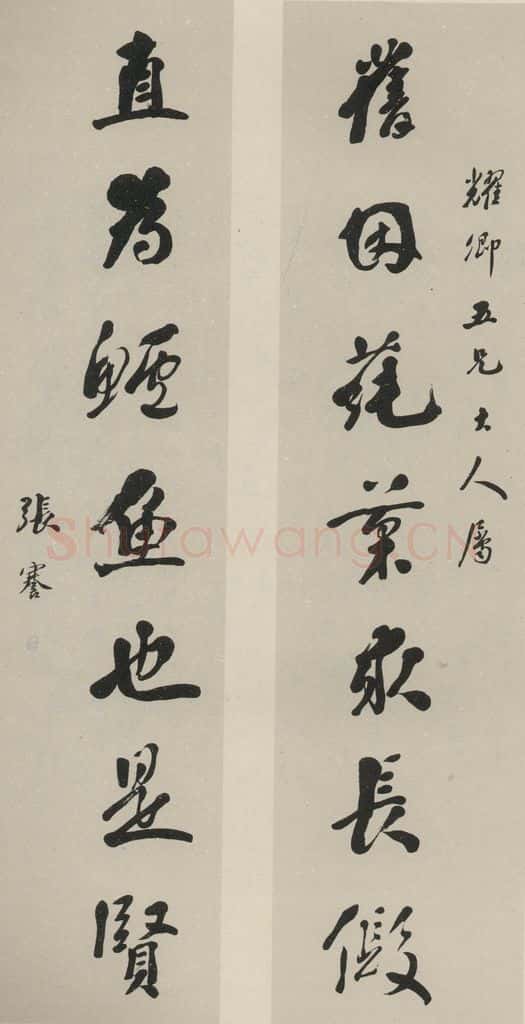 耀卿五兄大人屬
舊因蒓菜求長假
直為鱸魚也是賢
張謇
Shufawang.CN